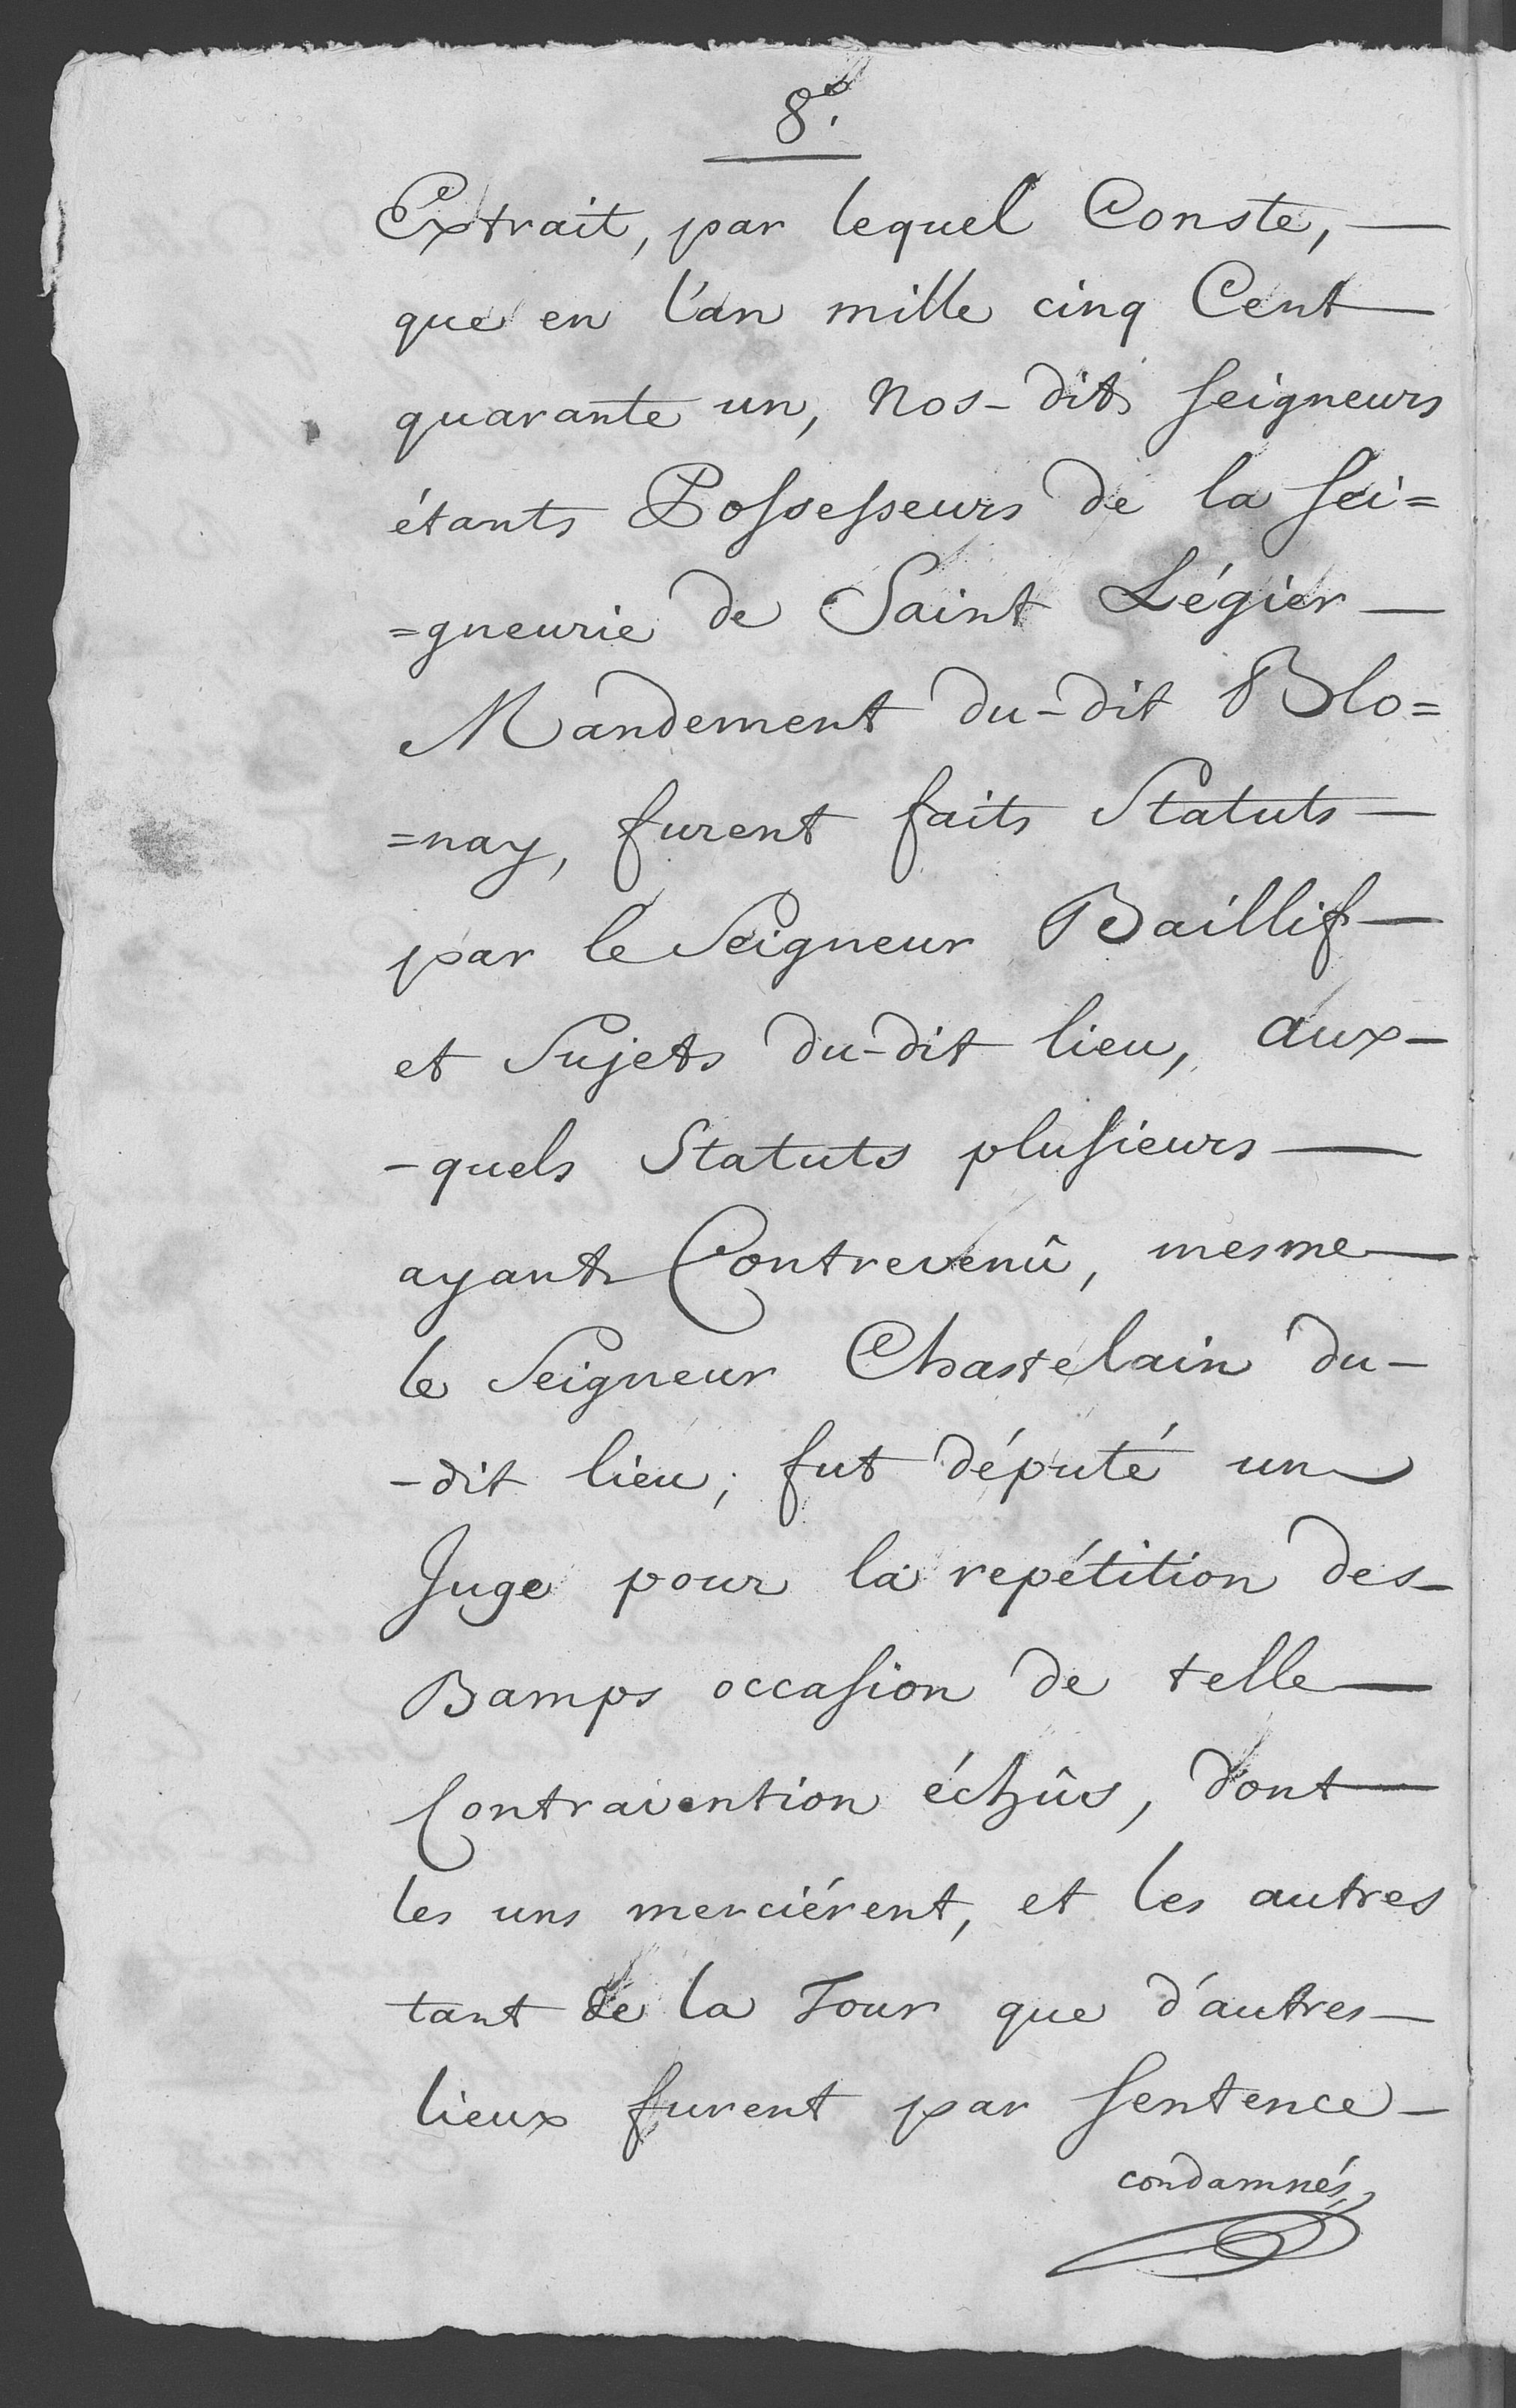 8.°
Extrait, par lequel Conste, —
que en l'an mille cinq Cent —
quarante un, Nos-dits seigneurs
étants Possesseurs de la sei=
=gneurie de Saint Légier —
Mandement du-dit Blo=
=nay, furent faits Statuts —
par le Seigneur Baillif —
et Sujets du-dit lieu, aux-
-quels Statuts plusieurs —
ayants Contrevenû, mesme —
le Seigneur Chastelain du-
-dit lieu; fut député un
Juge pour la repétition des —
Bamps occasion de telle —
Contravention échûs, dont —
les uns merciérent, et les autres
tant de la Tour que d'autres —
lieux furent par sentence —
condamnés,